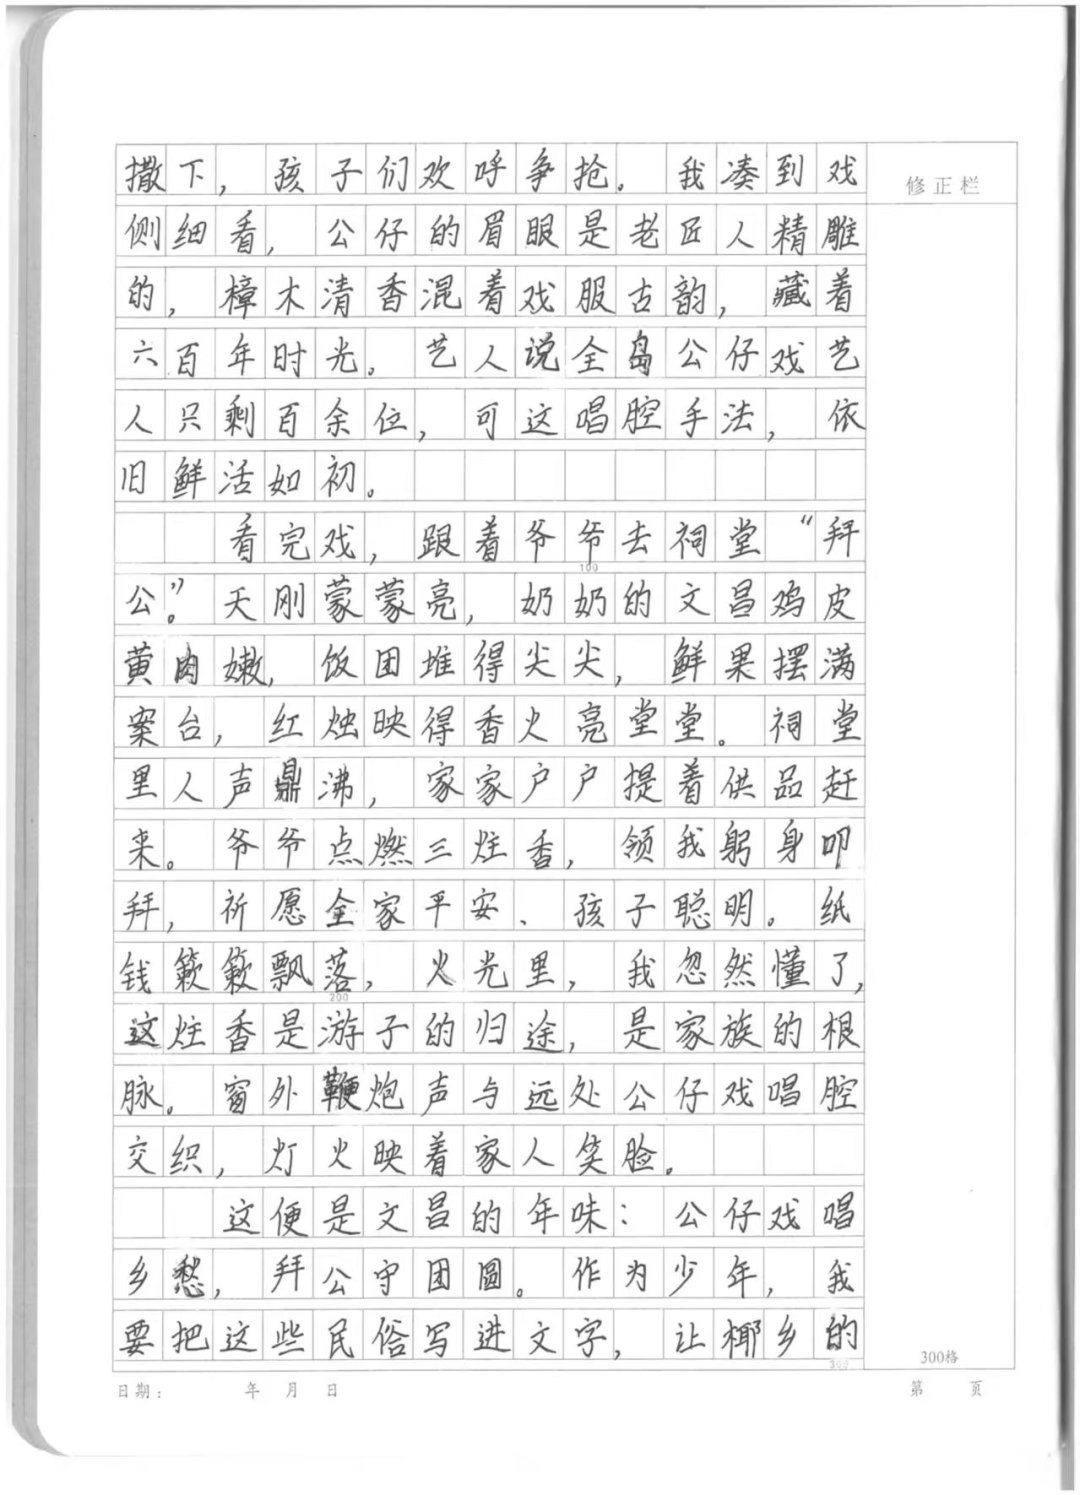 撒下，孩子们欢呼争抢。我凑到戏
修正栏
侧细看，公仔的眉眼是老匠人精雕
的，樟木清香混着戏服古韵，藏着
六百年时光。艺人说全岛公仔戏艺
人只剩百余位，可这唱腔手法，依
旧鲜活如初。
看完戏，跟着爷爷去祠堂“拜
100
公”。天刚蒙蒙亮，奶奶的文昌鸡皮
黄肉嫩，饭团堆得尖尖，鲜果摆满
案台，红烛映得香火亮堂堂。祠堂
里人声鼎沸，家家户户提着供品赶
来。爷爷点燃三炷香，领我躬身叩
拜，祈愿全家平安、孩子聪明。纸
钱簌簌飘落，火光里，我忽然懂了，
200
这炷香是游子的归途，是家族的根
脉。窗外鞭炮声与远处公仔戏唱腔
交织，灯火映着家人笑脸。
这便是文昌的年味：公仔戏唱
乡愁，拜公守团圆。作为少年，我
要把这些民俗写进文字，让椰乡的
300
300格
日期： 年 月 日
第 页